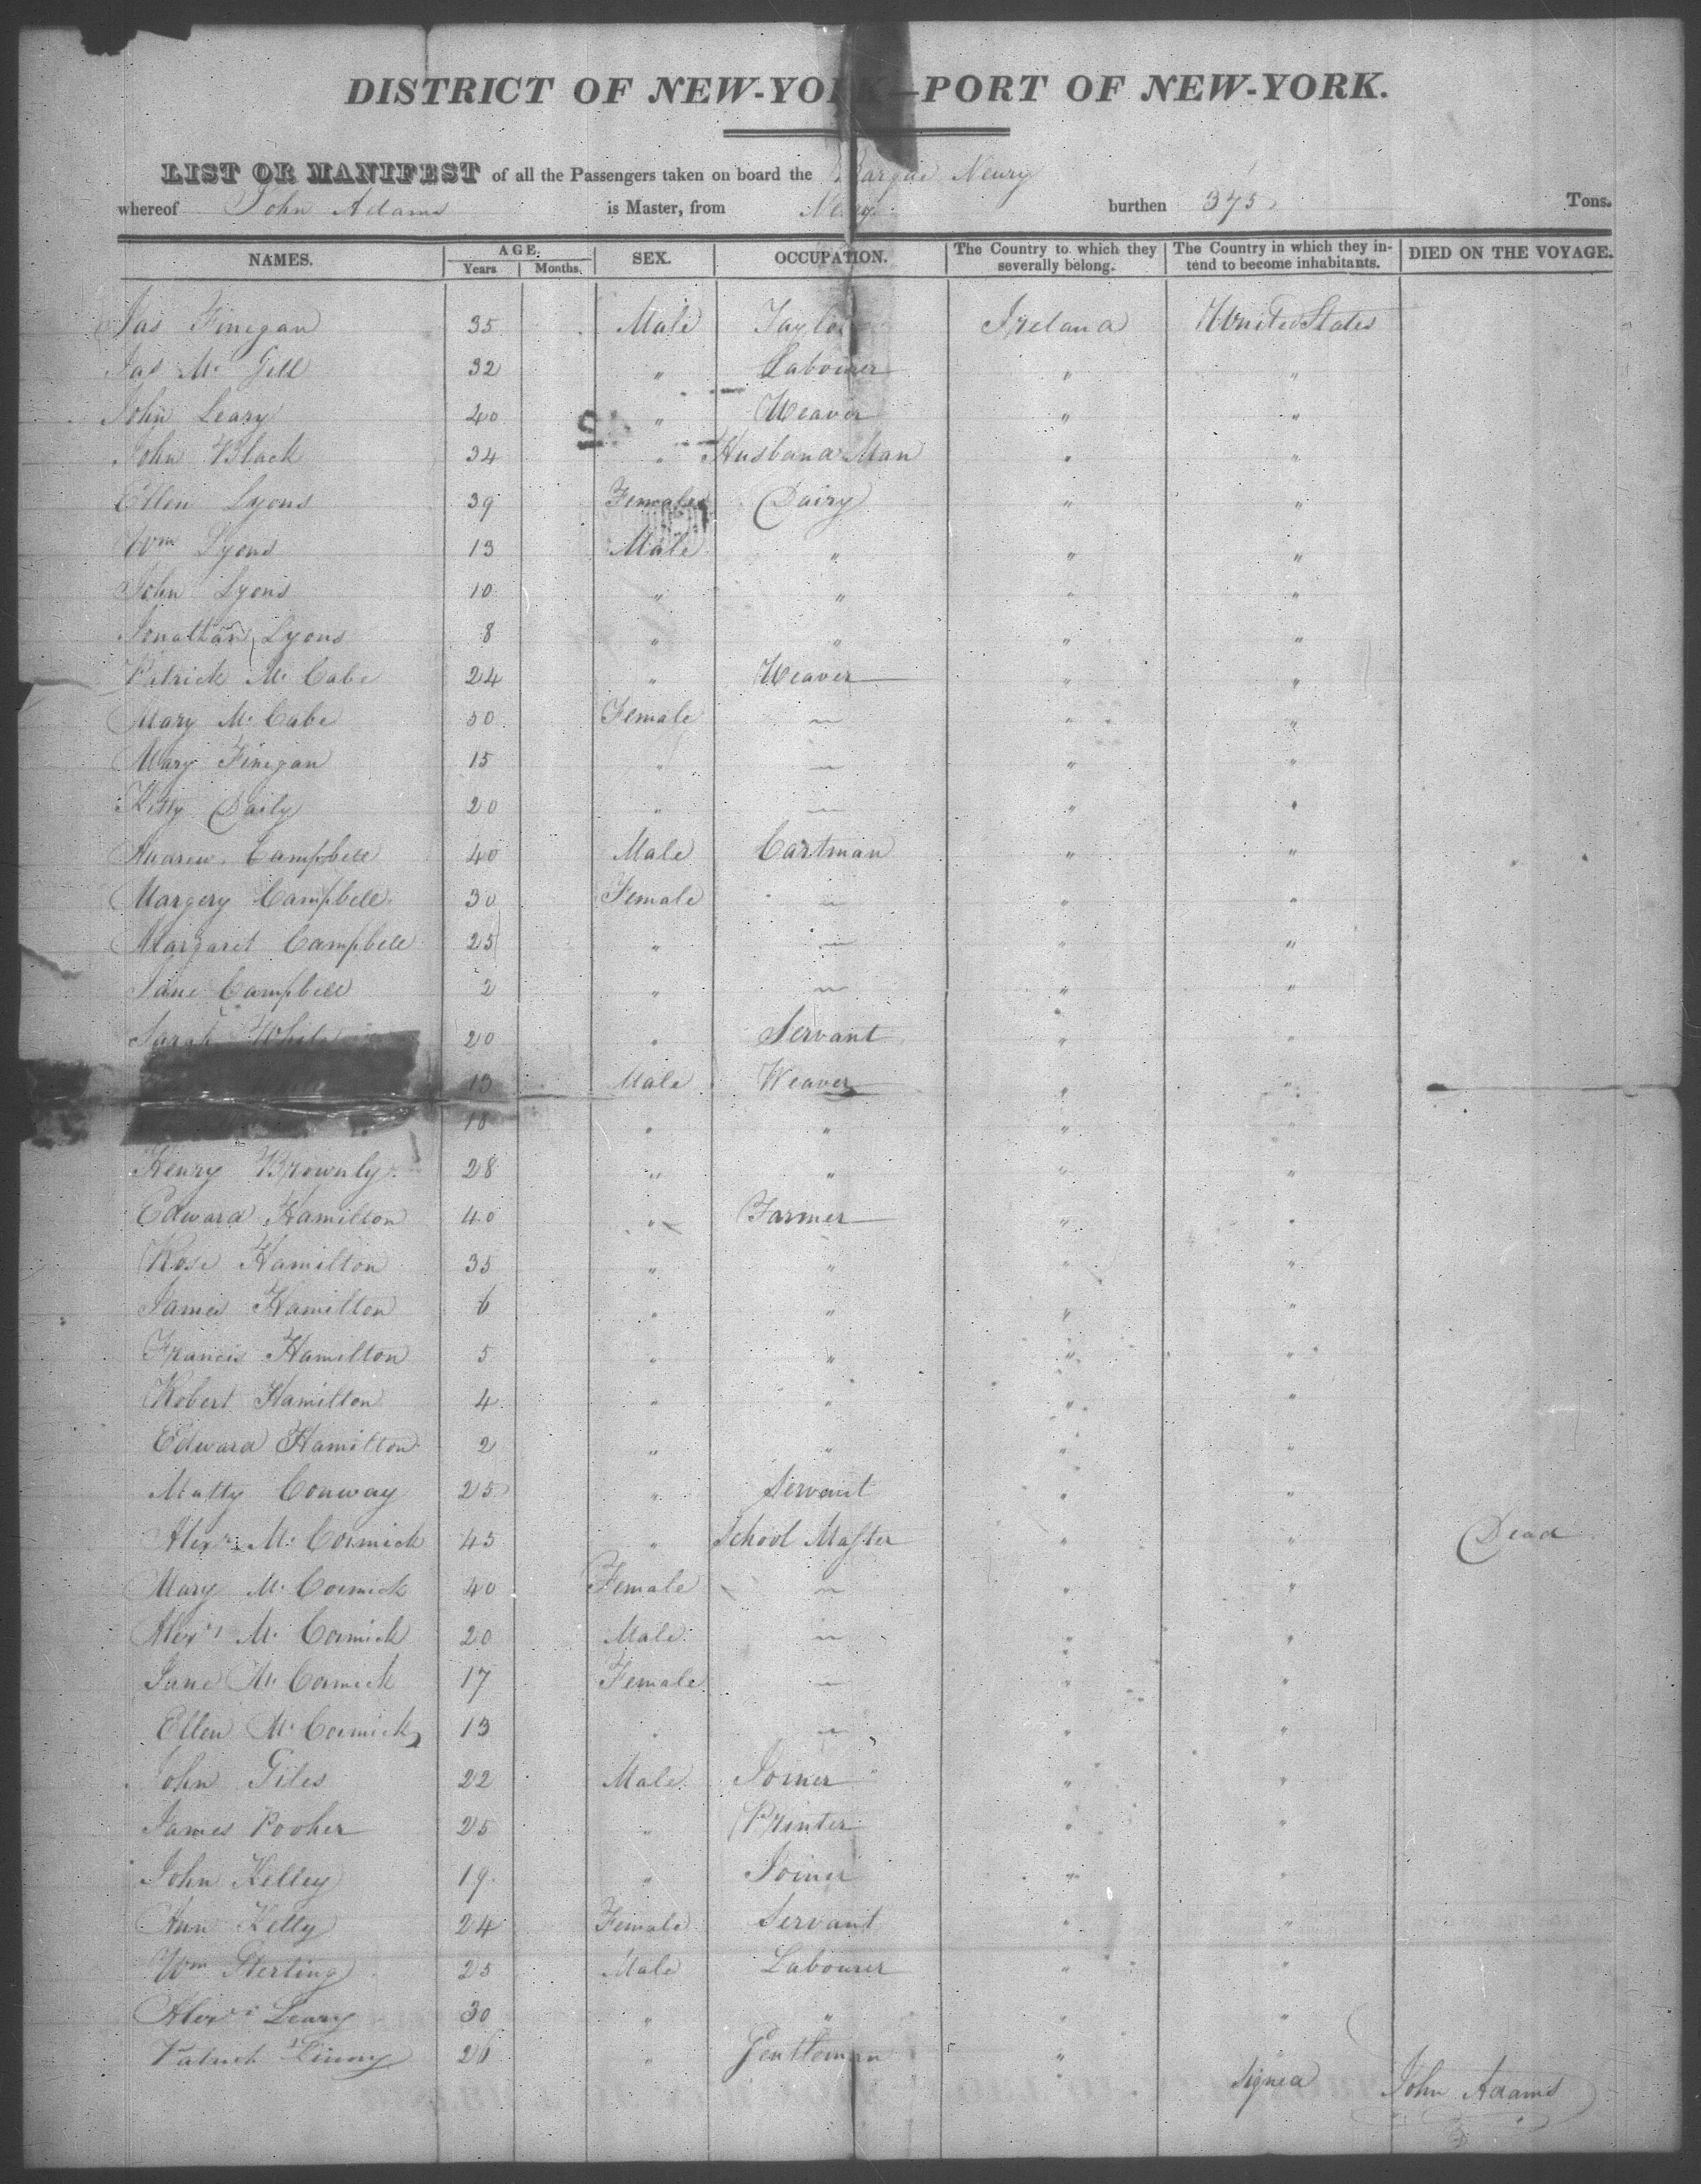 DISTRICT OF NEW-YORK—PORT OF NEW-YORK.
LIST OR MANIFEST of all the Passengers taken on board the Barque Newry
whereof John Adams is Master, from Newry burthen 375 Tons.
NAMES. AGE. Years Months. SEX. OCCUPATION. The Country to which they severally belong. The Country in which they intend to become inhabitants. DIED ON THE VOYAGE.
Jas Finegan 35 Male Taylor Ireland United States
Jas Mc Gill 32 " Labourer " "
John Leary 40 " Weaver " "
John Black 34 " Husband Man " "
Ellen Lyons 39 Female Dairy " "
Wm Lyons 13 Male " " "
John Lyons 10 " " " "
Jonathan Lyons 8 " " " "
Patrick Mc Cabe 24 " Weaver " "
Mary Mc Cabe 50 Female — " "
Mary Finegan 15 " — " "
Kitty Daily 20 " — " "
Andrew Campbell 40 Male Cartman " "
Margery Campbell 30 Female — " "
Margaret Campbell 25 " — " "
Jane Campbell 2 " — " "
Sarah White 20 " Servant " "
13 Male Weaver " "
10 " " " "
Henry Brownly 28 " " " "
Edward Hamilton 40 " Farmer " "
Rose Hamilton 35 " " " "
James Hamilton 6 " " " "
Francis Hamilton 5 " " " "
Robert Hamilton 4 " " " "
Edward Hamilton 2 " " " "
Matty Conway 25 " Servant " "
Alexr Mc Cormick 45 " School Master " " Dead
Mary Mc Cormick 40 Female — " "
Alexr Mc Cormick 20 Male — " "
Jane Mc Cormick 17 Female — " "
Ellen Mc Cormick 13 " — " "
John Giles 22 Male Joiner " "
James Pooher 25 " Printer " "
John Kelley 19 " Joiner " "
Ann Kelly 24 Female Servant " "
Wm Sterling 25 Male Labourer " "
Alexr Leary 30 " " " "
Patrick 26 " Gentleman " "
Signed John Adams